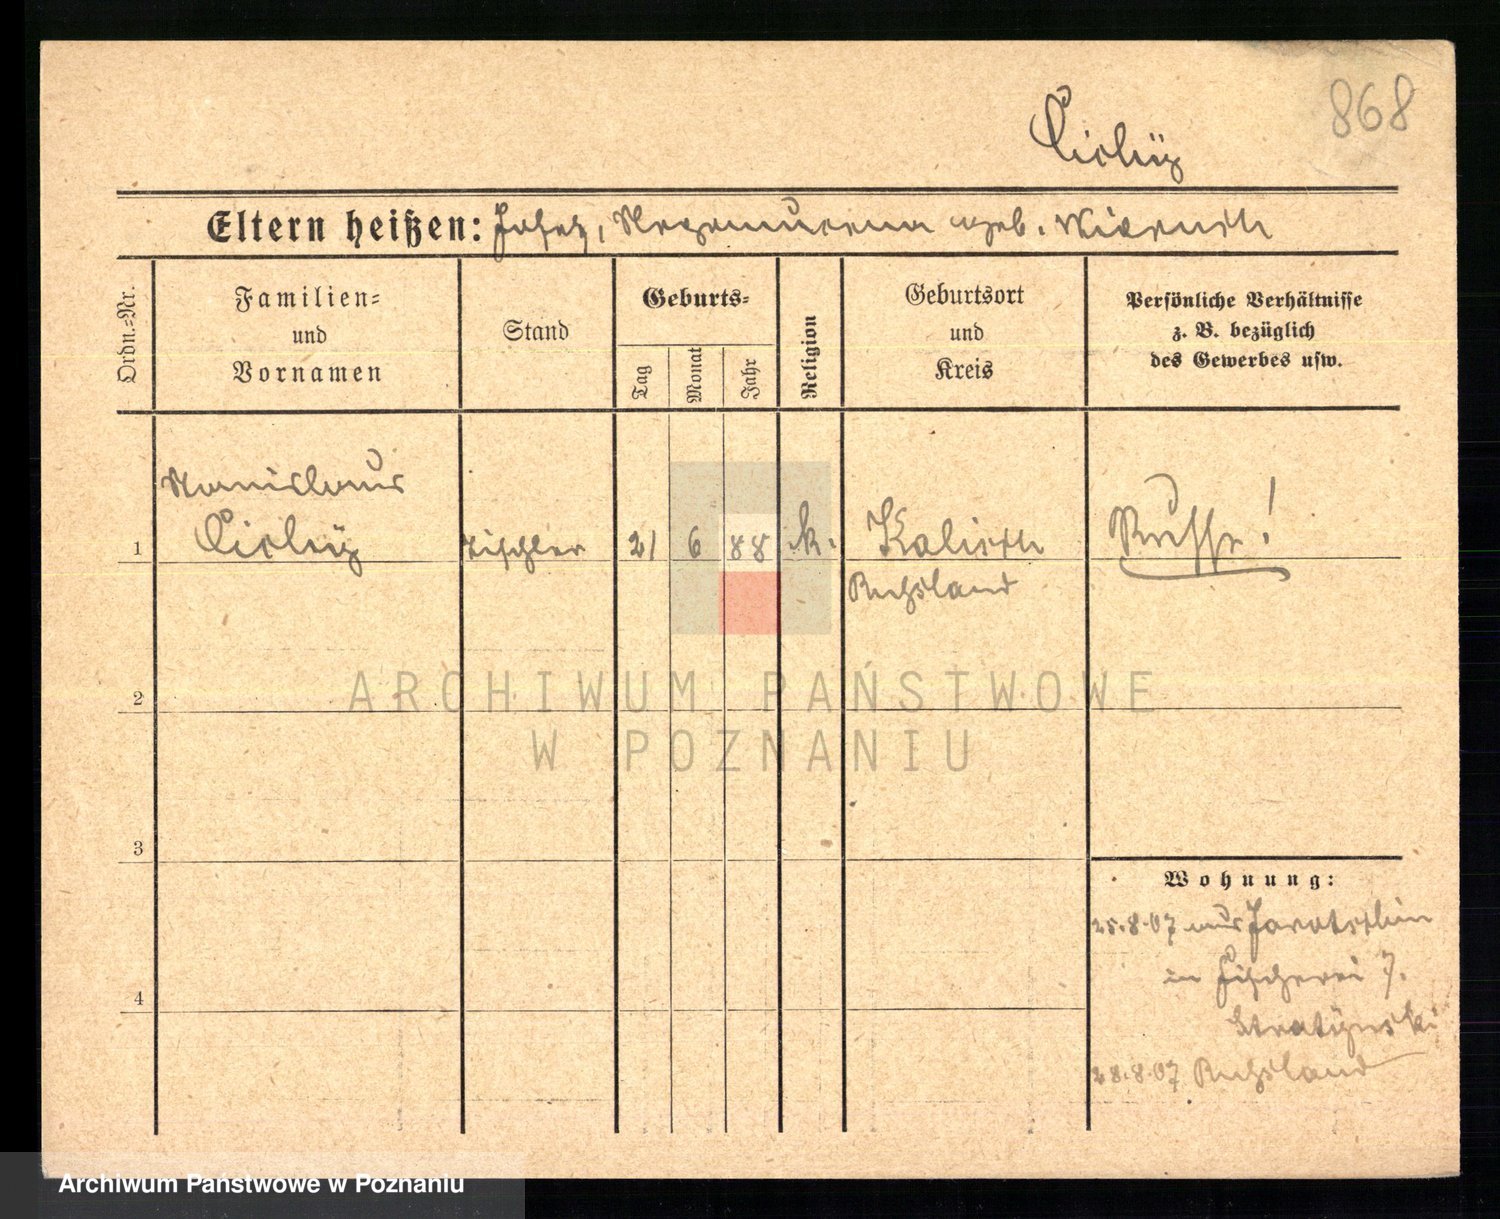 868
Cichy
Eltern heißen: Josef, Nepomucena geb. Wiernik
Ordn.=Nr.
Familien=
und
Vornamen
Stand
Geburts=
Tag
Monat
Jahr
Religion
Geburtsort
und
Kreis
Persönliche Verhältnisse
z. B. bezüglich
des Gewerbes usw.
Stanislaus
1 Cichy Tischler 21 6 88 k. Kalisch Russe!
Rußland
2
3
4
Wohnung:
25.8.07 aus Jarotschin
in Fischerei 7.
28.8.07 Rußland
ARCHIWUM PAŃSTWOWE
W POZNANIU
Archiwum Państwowe w Poznaniu